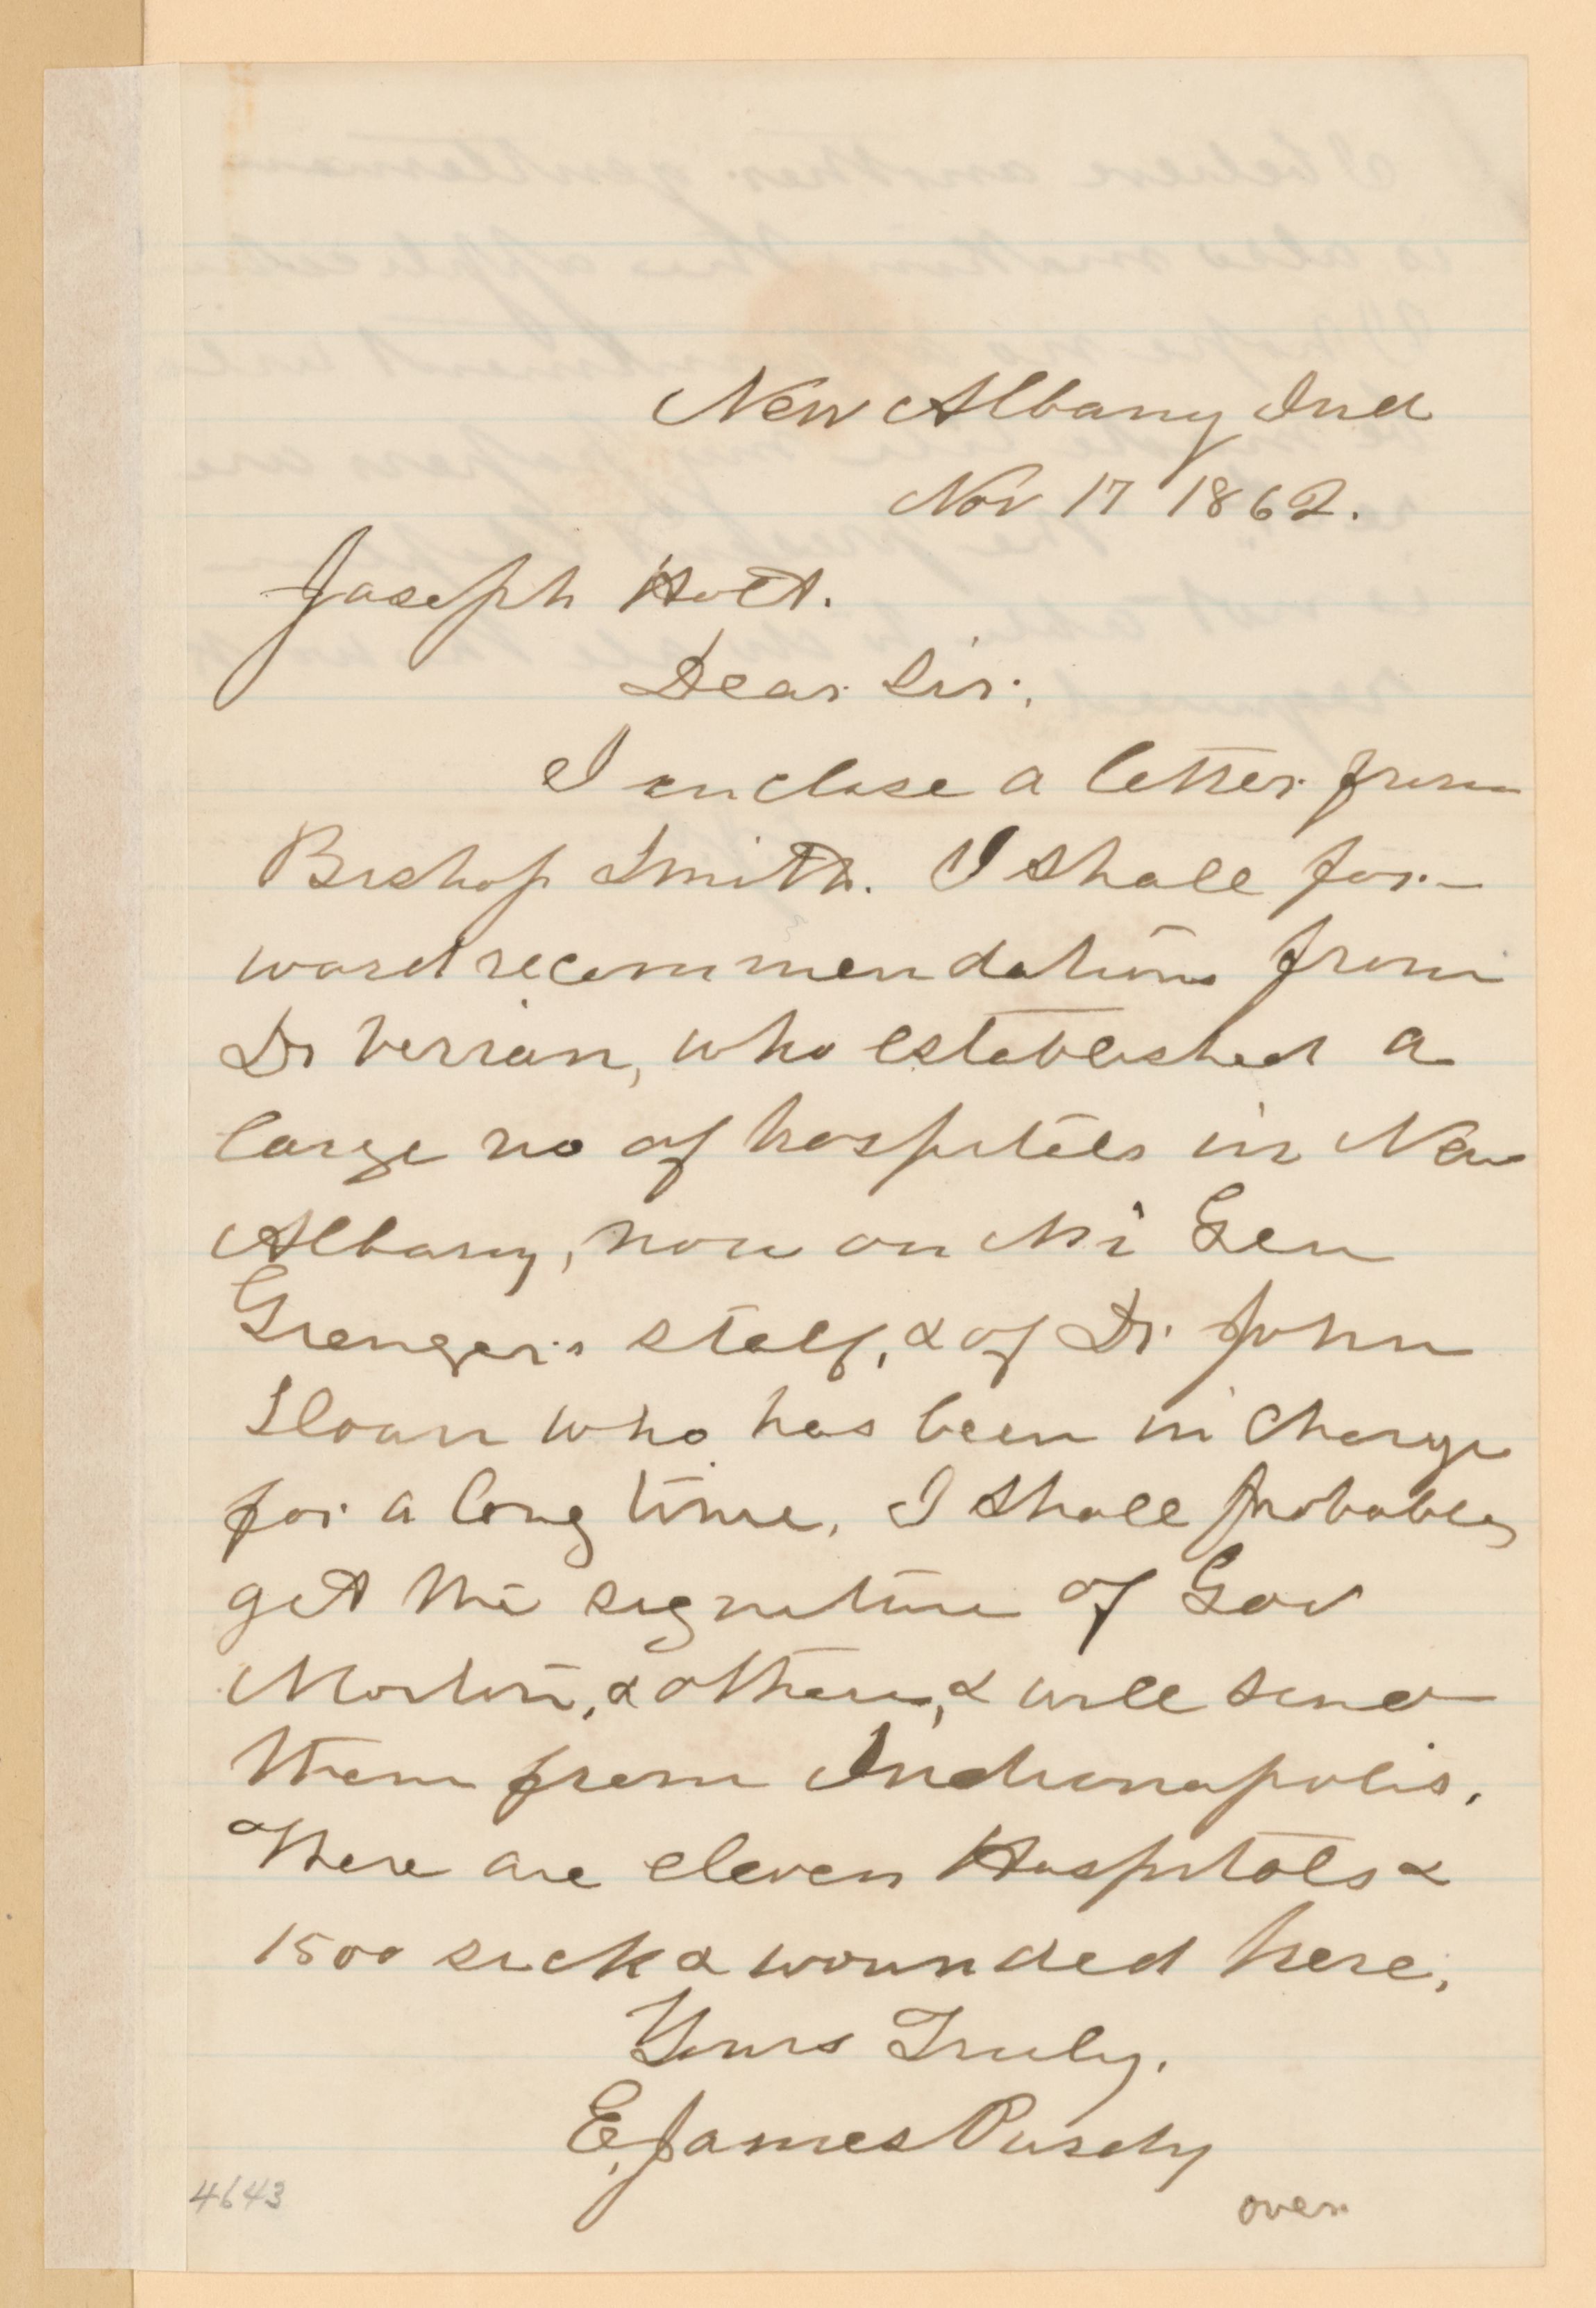 New Albany Ind
Nov 17 1862.
Joseph Holt.
Dear Sir;
I enclose a letter from
Bishop Smith. I shall for-
ward recommendations from
Dr Verrian, who established a
large no of hospitals in New
Albany, now on the Gen
Granger's staff, & of Dr John
Sloan who has been in charge
for a long time. I shall probably
get the signature of Gov
Morton, & others, & will send
them from Indianapolis.
There are eleven Hospitals &
1500 sick & wounded here.
Yours Truly.
E. James Purdy
over
4643